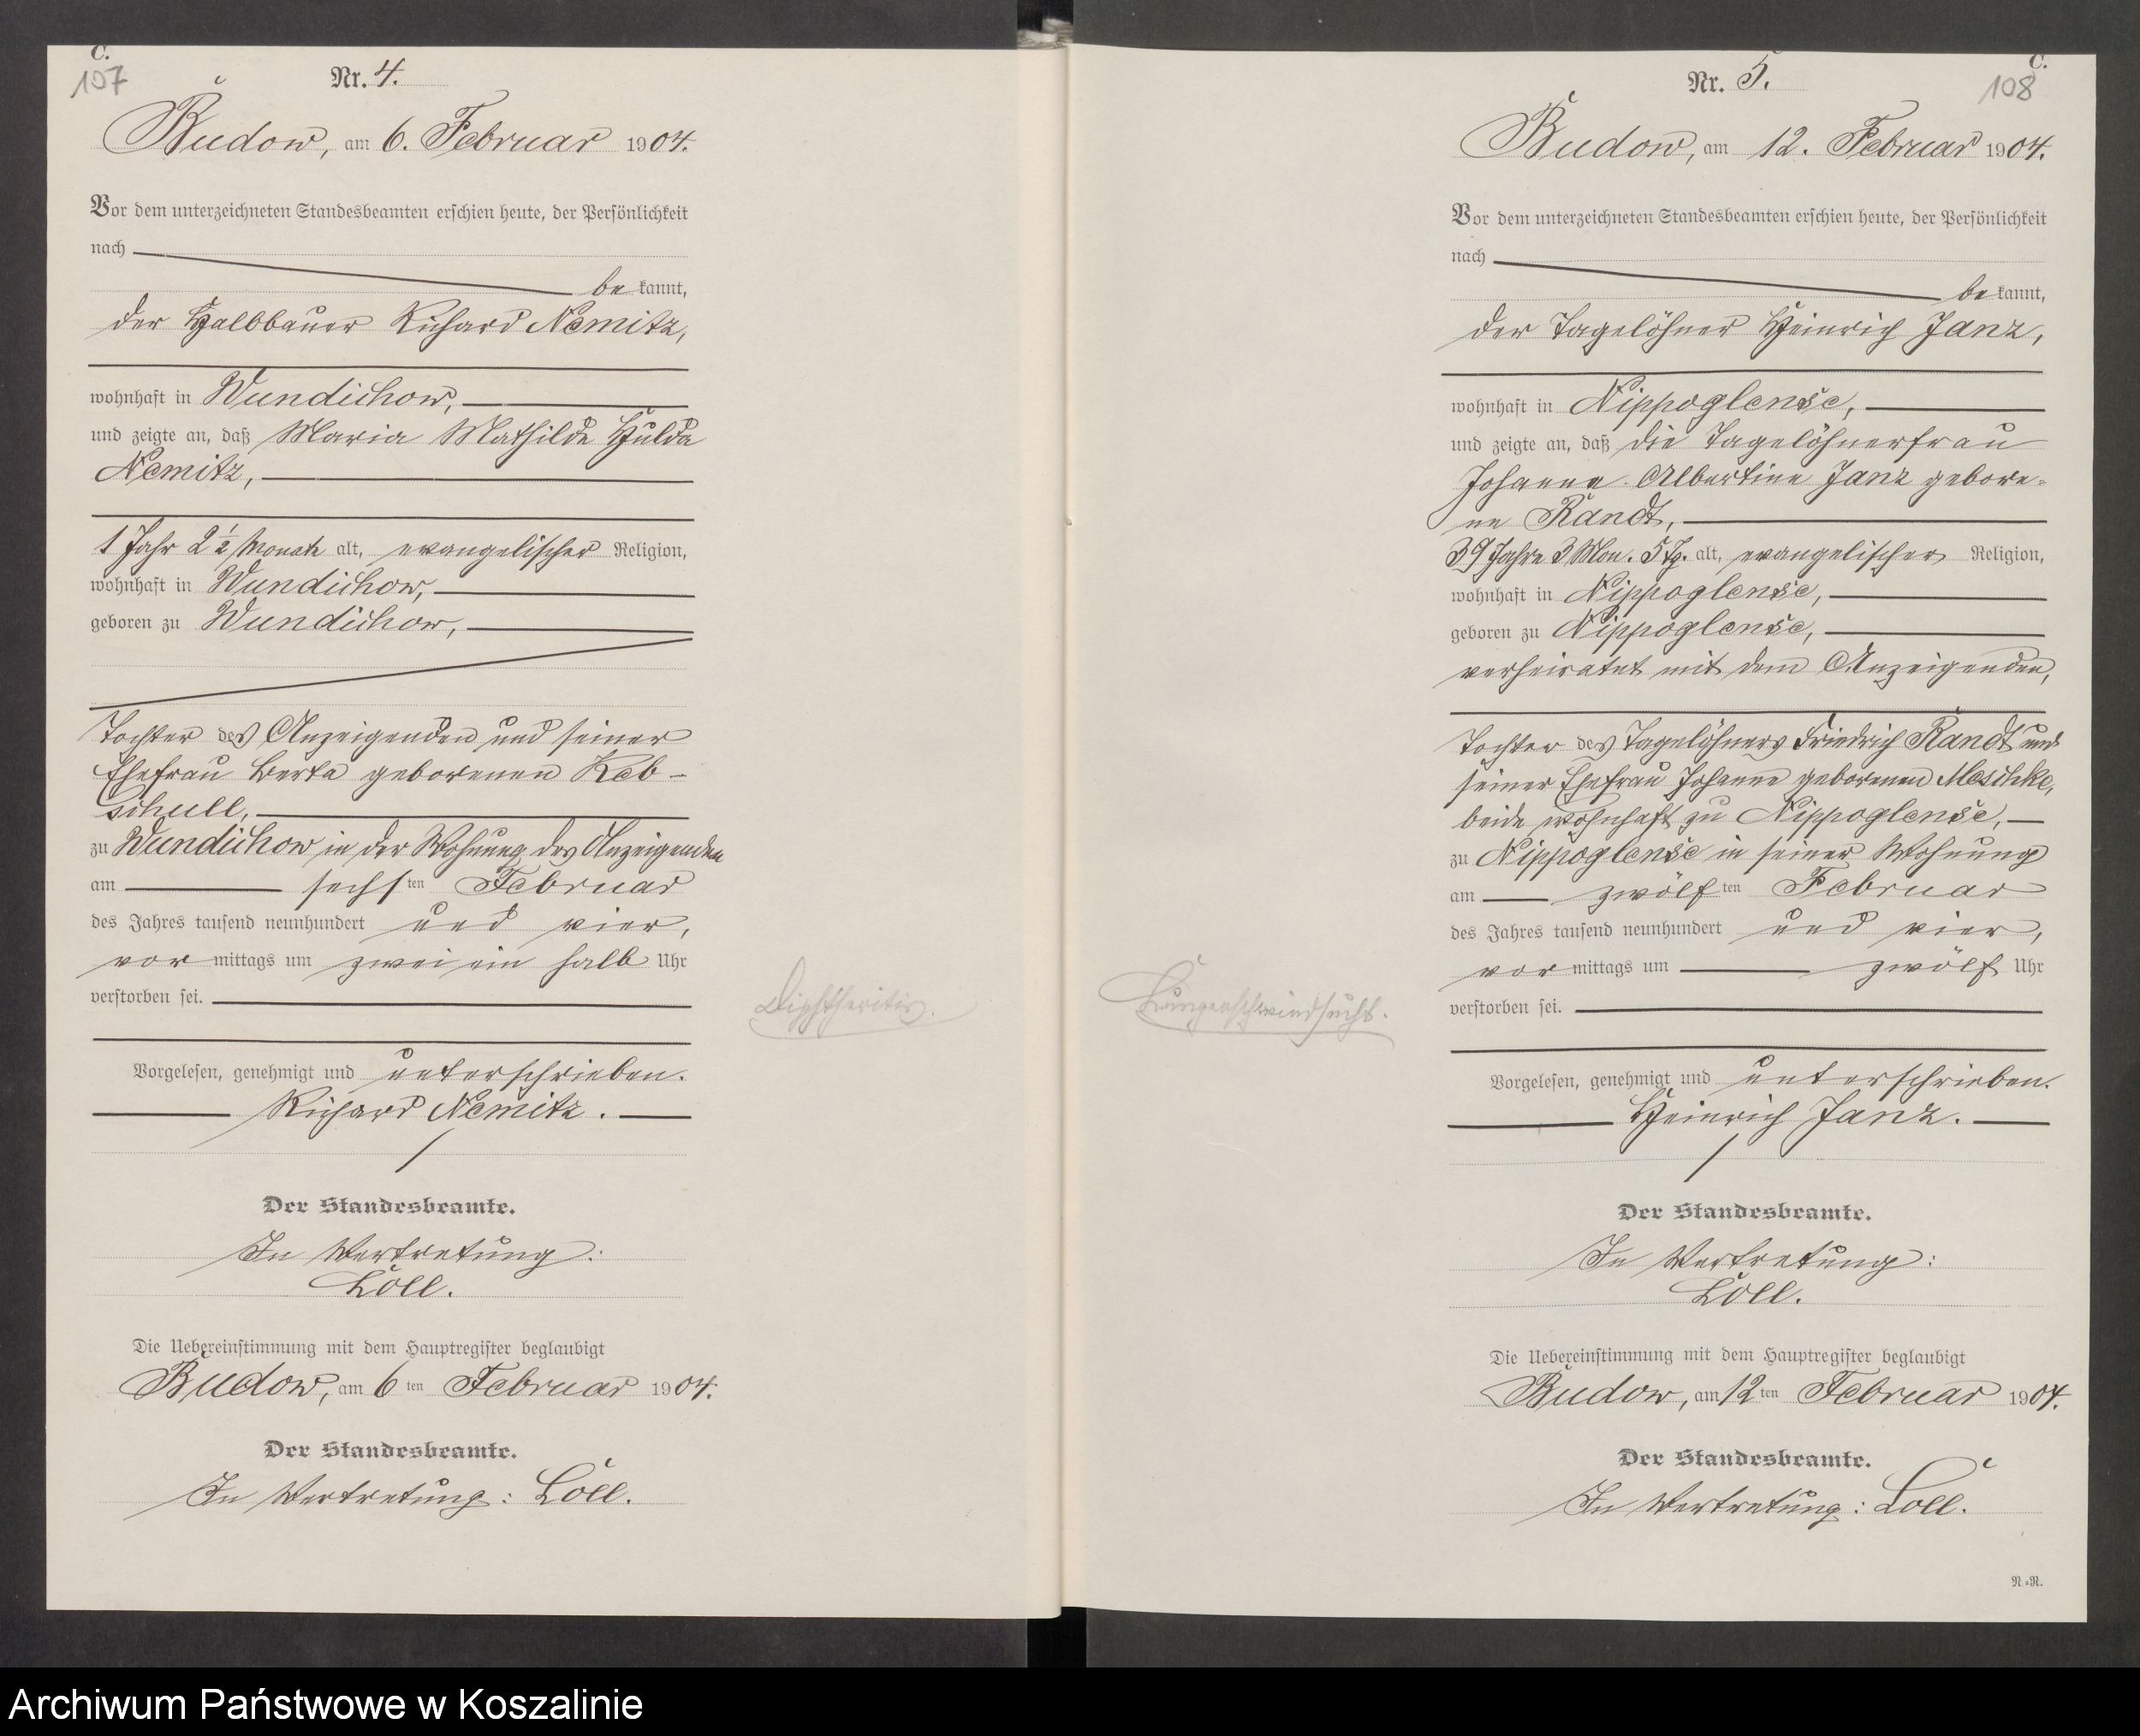 C.
107
Nr. 4.
Budow, am 6. Februar 1904.
Vor dem unterzeichneten Standesbeamten erschien heute, der Persönlichkeit
nach
bekannt,
der Halbbauer Richard Nemitz,
wohnhaft in Wundichow,
und zeigte an, daß Maria Mathilde Hulda
Nemitz,
1 Jahr 2 ½ Monate alt, evangelischer Religion,
wohnhaft in Wundichow,
geboren zu Wundichow,
Tochter des Anzeigenden und seiner
Ehefrau Berta geborenen Keb-
schull,
zu Wundichow in der Wohnung des Anzeigenden
am sechsten Februar
des Jahres tausend neunhundert und vier,
vormittags um zwei ein halb Uhr
verstorben sei.
Diphtheritis.
Vorgelesen, genehmigt und unterschrieben.
Richard Nemitz.
Der Standesbeamte.
In Vertretung:
Löll.
Die Uebereinstimmung mit dem Hauptregister beglaubigt
Budow, am 6ten Februar 1904.
Der Standesbeamte.
In Vertretung: Löll.
C.
108
Nr. 5.
Budow, am 12. Februar 1904.
Vor dem unterzeichneten Standesbeamten erschien heute, der Persönlichkeit
nach
bekannt,
der Tagelöhner Heinrich Janz,
wohnhaft in Nippoglense,
und zeigte an, daß die Tagelöhnerfrau
Johanne Albertine Janz gebore-
ne Randt,
39 Jahre 3 Mon. 5 Tg. alt, evangelischer Religion,
wohnhaft in Nippoglense,
geboren zu Nippoglense,
verheiratet mit dem Anzeigenden,
Tochter des Tagelöhners Friedrich Randt und
seiner Ehefrau Johanne geborenen Meschke,
beide wohnhaft zu Nippoglense,
zu Nippoglense in seiner Wohnung
am zwölften Februar
des Jahres tausend neunhundert und vier,
vormittags um zwölf Uhr
verstorben sei.
Lungenschwindsucht.
Vorgelesen, genehmigt und unterschrieben.
Heinrich Janz.
Der Standesbeamte.
In Vertretung:
Löll.
Die Uebereinstimmung mit dem Hauptregister beglaubigt
Budow, am 12ten Februar 1904.
Der Standesbeamte.
In Vertretung: Löll.
N=N.
Archiwum Państwowe w Koszalinie